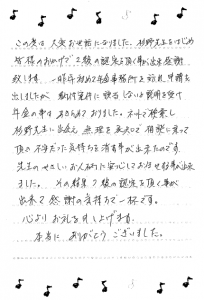 この度は大変お世話になりました。杉野先生をはじめ
皆様のおかげで2級の認定を頂く事が出来感謝
致します。一昨年初めて年金事務所を訪れ申請を
出しましたが、納付条件に該当しないと説明を受け
年金の事はあきらめておりました。ネットで検索し
杉野先生に出会え無理を承知で相談に乗って
頂の不安だった気持ちを
先生のやさしいお人柄に安心してお任せする事が出来
ました。その結果2級の認定を頂く事が
出来て感謝の気持ちで一杯です。
心よりお礼を申し上げます。
本当にありがとうございました。